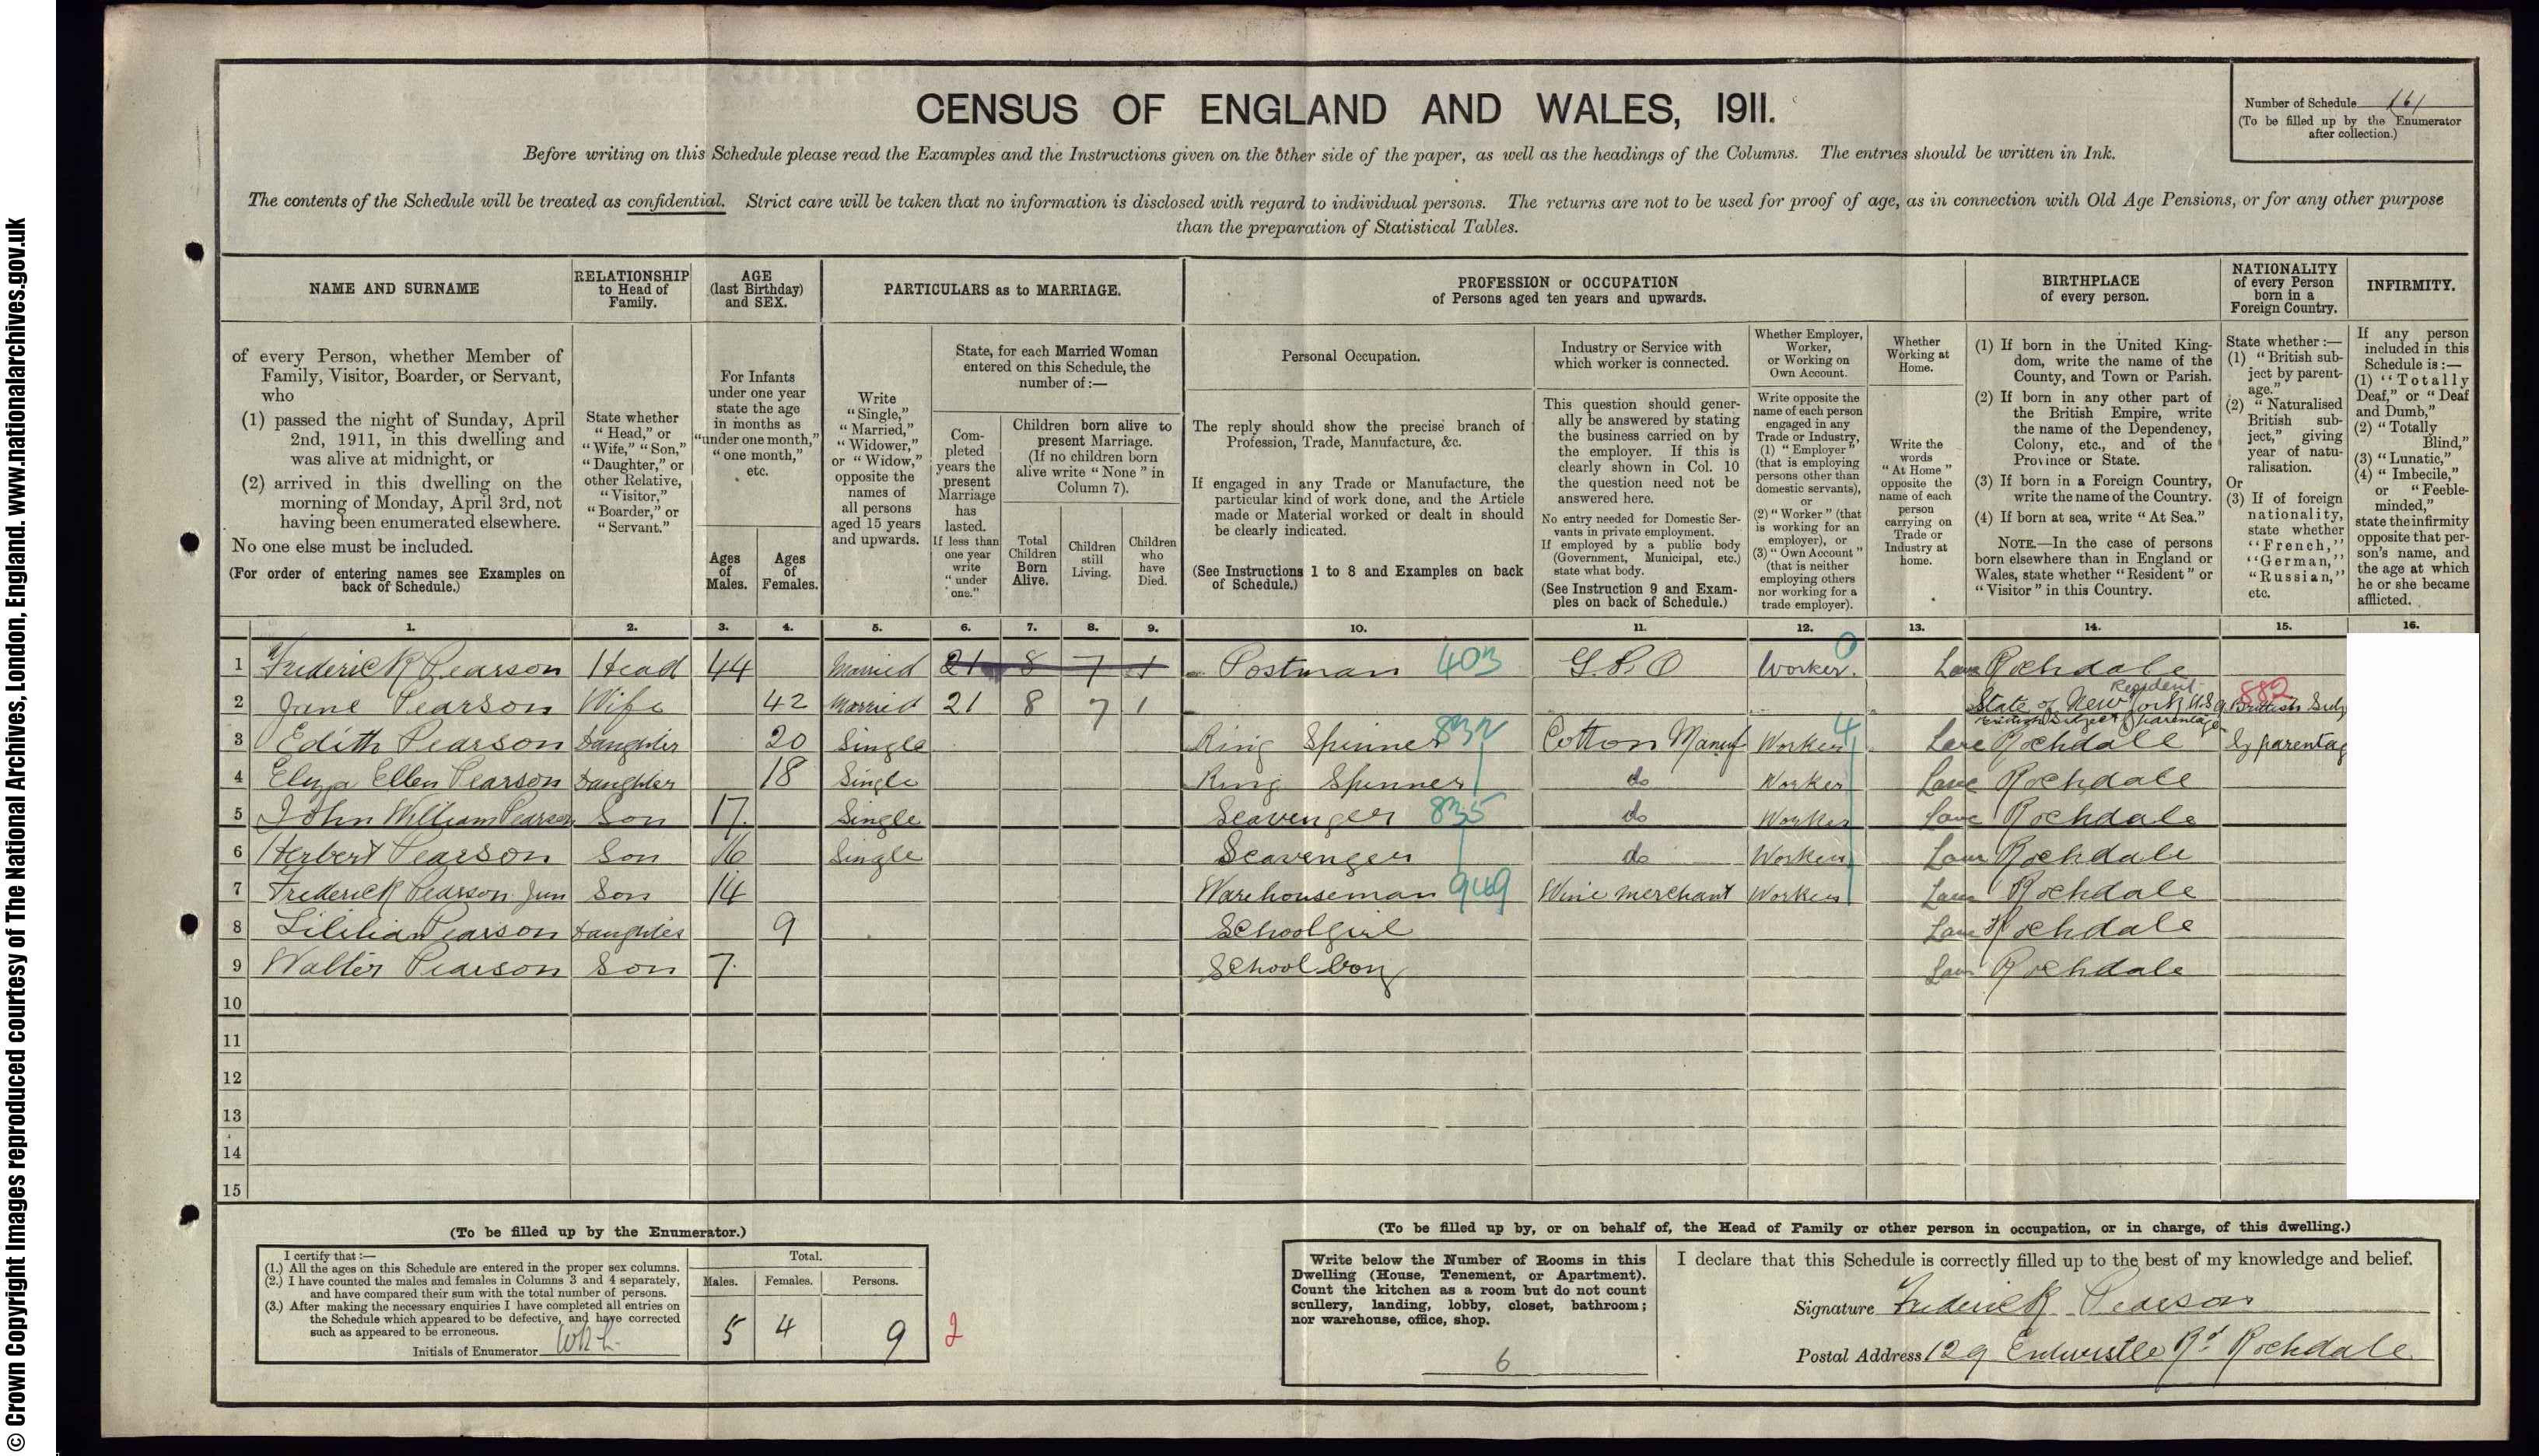 © Crown Copyright Images reproduced courtesy of The National Archives, London, England. www.nationalarchives.gov.uk
CENSUS OF ENGLAND AND WALES, 1911.
Number of Schedule 161
(To be filled up by the Enumerator
after collection.)
Before writing on this Schedule please read the Examples and the Instructions given on the other side of the paper, as well as the headings of the Columns. The entries should be written in Ink.
The contents of the Schedule will be treated as confidential. Strict care will be taken that no information is disclosed with regard to individual persons. The returns are not to be used for proof of age, as in connection with Old Age Pensions, or for any other purpose
than the preparation of Statistical Tables.
NAME AND SURNAME
of every Person, whether Member of
Family, Visitor, Boarder, or Servant,
who
(1) passed the night of Sunday, April
2nd, 1911, in this dwelling and
was alive at midnight, or
(2) arrived in this dwelling on the
morning of Monday, April 3rd, not
having been enumerated elsewhere.
No one else must be included.
(For order of entering names see Examples on
back of Schedule.)
RELATIONSHIP
to Head of
Family.
State whether
"Head," or
"Wife," "Son,"
"Daughter," or
other Relative,
"Visitor,"
"Boarder," or
"Servant."
AGE
(last Birthday)
and SEX.
For Infants
under one year
state the age
in months as
"under one month,"
"one month,"
etc.
Ages
of
Males.
Ages
of
Females.
PARTICULARS as to MARRIAGE.
Write
"Single,"
"Married,"
"Widower,"
or "Widow,"
opposite the
names of
all persons
aged 15 years
and upwards.
State, for each Married Woman
entered on this Schedule, the
number of:—
Com-
pleted
years the
present
Marriage
has
lasted.
If less than
one year
write
"under
one."
Children born alive to
present Marriage.
(If no children born
alive write "None" in
Column 7).
Total
Children
Born
Alive.
Children
still
Living.
Children
who
have
Died.
PROFESSION or OCCUPATION
of Persons aged ten years and upwards.
Personal Occupation.
The reply should show the precise branch of
Profession, Trade, Manufacture, &c.
If engaged in any Trade or Manufacture, the
particular kind of work done, and the Article
made or Material worked or dealt in should
be clearly indicated.
(See Instructions 1 to 8 and Examples on back
of Schedule.)
Industry or Service with
which worker is connected.
This question should gener-
ally be answered by stating
the business carried on by
the employer. If this is
clearly shown in Col. 10
the question need not be
answered here.
No entry needed for Domestic Ser-
vants in private employment.
If employed by a public body
(Government, Municipal, etc.)
state what body.
(See Instruction 9 and Exam-
ples on back of Schedule.)
Whether Employer,
Worker,
or Working on
Own Account.
Write opposite the
name of each person
engaged in any
Trade or Industry,
(1) "Employer"
(that is employing
persons other than
domestic servants),
or
(2) "Worker" (that
is working for an
employer), or
(3) "Own Account"
(that is neither
employing others
nor working for a
trade employer).
Whether
Working at
Home.
Write the
words
"At Home"
opposite the
name of each
person
carrying on
Trade or
Industry at
home.
BIRTHPLACE
of every person.
(1) If born in the United King-
dom, write the name of the
County, and Town or Parish.
(2) If born in any other part of
the British Empire, write
the name of the Dependency,
Colony, etc., and of the
Province or State.
(3) If born in a Foreign Country,
write the name of the Country.
(4) If born at sea, write "At Sea."
NOTE.—In the case of persons
born elsewhere than in England or
Wales, state whether "Resident" or
"Visitor" in this Country.
NATIONALITY
of every Person
born in a
Foreign Country.
State whether:—
(1) "British sub-
ject by parent-
age."
(2) "Naturalised
British sub-
ject," giving
year of natu-
ralisation.
Or
(3) If of foreign
nationality,
state whether
"French,"
"German,"
"Russian,"
etc.
INFIRMITY.
If any person
included in this
Schedule is:—
(1) "Totally
Deaf," or "Deaf
and Dumb,"
(2) "Totally
Blind,"
(3) "Lunatic,"
(4) "Imbecile,"
or "Feeble-
minded,"
state the infirmity
opposite that per-
son's name, and
the age at which
he or she became
afflicted.
1. 2. 3. 4. 5. 6. 7. 8. 9. 10. 11. 12. 13. 14. 15. 16.
1 Frederick Pearson Head 44 Married 21 8 7 1 Postman 403 G.P.O Worker. 0 Lanc Rochdale
2 Jane Pearson Wife 42 Married 21 8 7 1 State of New York U.S.A Resident British Subject by parentage 882 British Subj
3 Edith Pearson Daughter 20 Single Ring Spinner 832 Cotton Manuf Worker 4 Lanc Rochdale by parentage
4 Eliza Ellen Pearson Daughter 18 Single Ring Spinner do Worker Lanc Rochdale
5 John William Pearson Son 17. Single Scavenger 835 do Worker Lanc Rochdale
6 Herbert Pearson Son 16 Single Scavenger do Worker Lanc Rochdale
7 Frederick Pearson Jun Son 14 Warehouseman 949 Wine Merchant Worker Lanc Rochdale
8 Lililian Pearson Daughter 9 Schoolgirl Lanc Rochdale
9 Walter Pearson Son 7. School boy Lanc Rochdale
10
11
12
13
14
15
(To be filled up by the Enumerator.)
I certify that:—
(1.) All the ages on this Schedule are entered in the proper sex columns.
(2.) I have counted the males and females in Columns 3 and 4 separately,
and have compared their sum with the total number of persons.
(3.) After making the necessary enquiries I have completed all entries on
the Schedule which appeared to be defective, and have corrected
such as appeared to be erroneous.
Initials of Enumerator
Total.
Males. Females. Persons.
5 4 9 2
(To be filled up by, or on behalf of, the Head of Family or other person in occupation, or in charge, of this dwelling.)
Write below the Number of Rooms in this
Dwelling (House, Tenement, or Apartment).
Count the kitchen as a room but do not count
scullery, landing, lobby, closet, bathroom;
nor warehouse, office, shop.
6
I declare that this Schedule is correctly filled up to the best of my knowledge and belief.
Signature Frederick Pearson
Postal Address 129 Entwistle Rd Rochdale